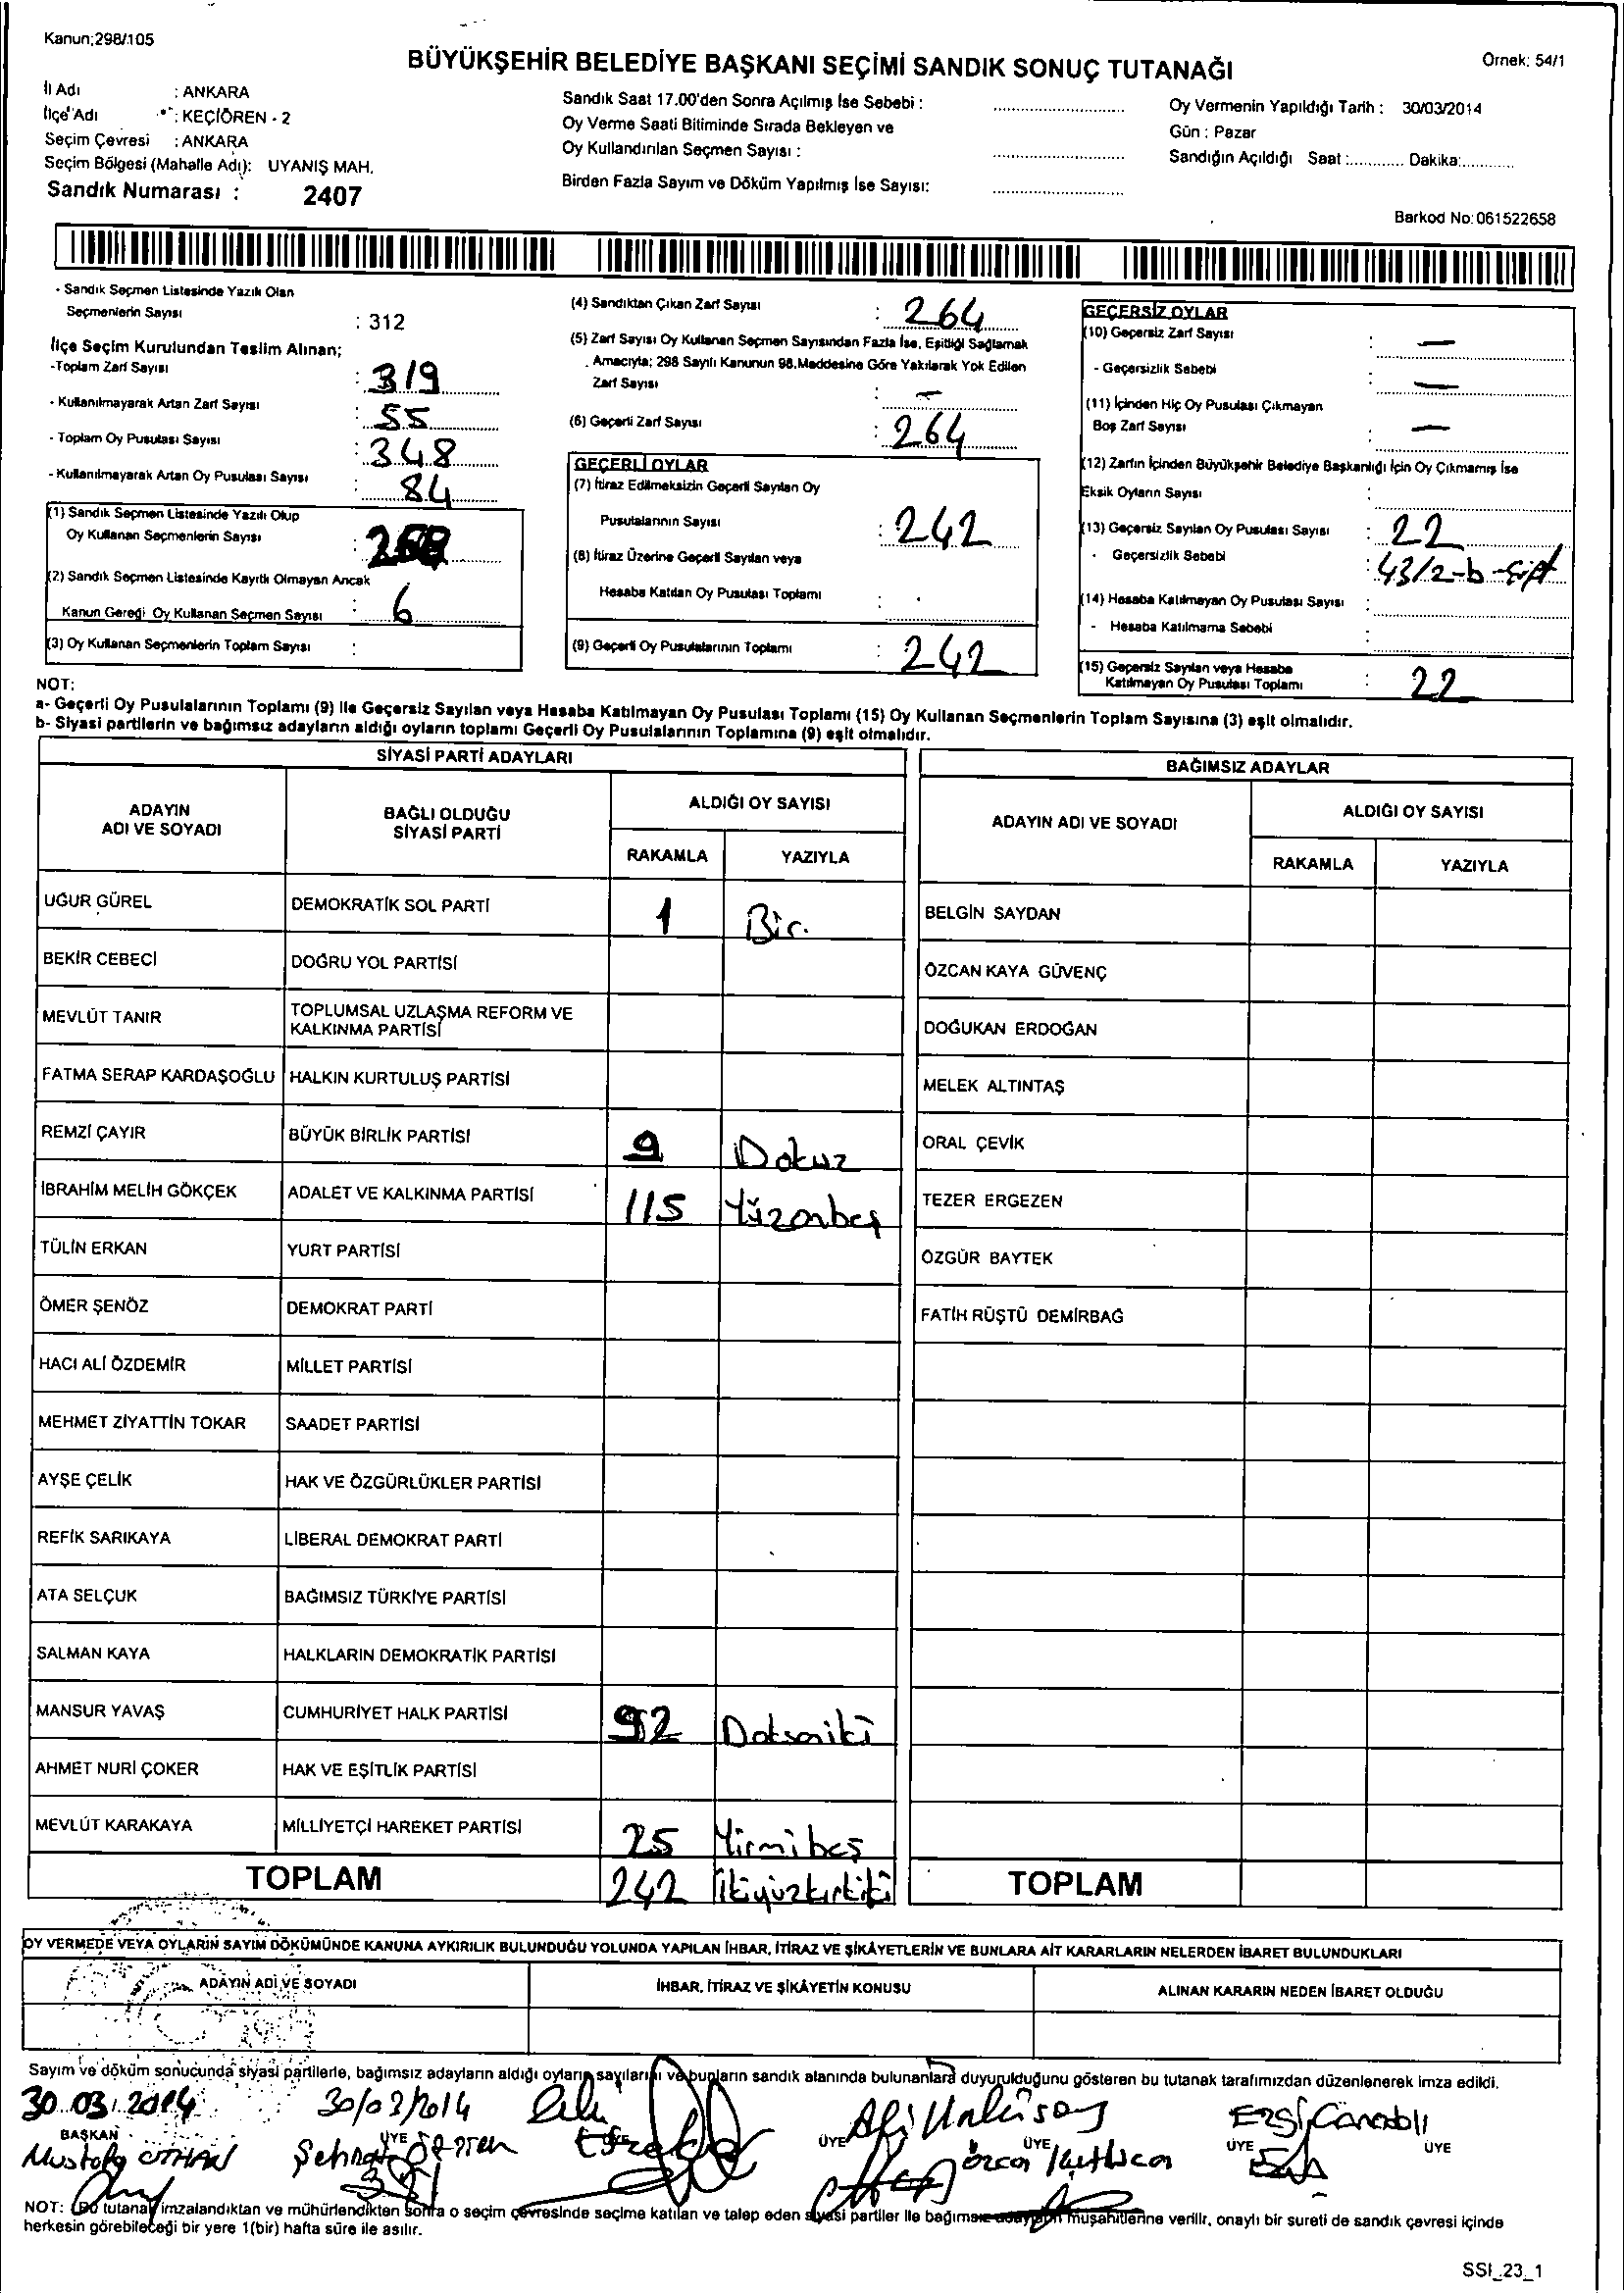 Kanun;298/105
BÜYÜKŞEHİR BELEDİYE BAŞKANI SEÇİMİ SANDIK SONUÇ TUTANAĞI
Örnek: 54/1
İl Adı : ANKARA
İlçe Adı : KEÇİÖREN - 2
Seçim Çevresi : ANKARA
Seçim Bölgesi (Mahalle Adı): UYANIŞ MAH.
Sandık Numarası : 2407
Sandık Saat 17.00'den Sonra Açılmış İse Sebebi :
Oy Verme Saati Bitiminde Sırada Bekleyen ve
Oy Kullandırılan Seçmen Sayısı :
Birden Fazla Sayım ve Döküm Yapılmış İse Sayısı:
Oy Vermenin Yapıldığı Tarih : 30/03/2014
Gün : Pazar
Sandığın Açıldığı Saat :............ Dakika:............
Barkod No: 061522658
- Sandık Seçmen Listesinde Yazılı Olan
Seçmenlerin Sayısı : 312
İlçe Seçim Kurulundan Teslim Alınan;
-Toplam Zarf Sayısı : 319
- Kullanılmayarak Artan Zarf Sayısı : 55
- Toplam Oy Pusulası Sayısı : 348
- Kullanılmayarak Artan Oy Pusulası Sayısı : 84
(1) Sandık Seçmen Listesinde Yazılı Olup
Oy Kullanan Seçmenlerin Sayısı :
(2) Sandık Seçmen Listesinde Kayıtlı Olmayan Ancak
Kanun Gereği Oy Kullanan Seçmen Sayısı : 6
(3) Oy Kullanan Seçmenlerin Toplam Sayısı :
(4) Sandıktan Çıkan Zarf Sayısı : 264
(5) Zarf Sayısı Oy Kullanan Seçmen Sayısından Fazla İse, Eşitliği Sağlamak
Amacıyla; 298 Sayılı Kanunun 98.Maddesine Göre Yakılarak Yok Edilen
Zarf Sayısı : -
(6) Geçerli Zarf Sayısı : 264
GEÇERLİ OYLAR
(7) İtiraz Edilmeksizin Geçerli Sayılan Oy
Pusulalarının Sayısı : 242
(8) İtiraz Üzerine Geçerli Sayılan veya
Hesaba Katılan Oy Pusulası Toplamı :
(9) Geçerli Oy Pusulalarının Toplamı : 242
GEÇERSİZ OYLAR
(10) Geçersiz Zarf Sayısı : —
- Geçersizlik Sebebi : —
(11) İçinden Hiç Oy Pusulası Çıkmayan
Boş Zarf Sayısı : —
(12) Zarfın İçinden Büyükşehir Belediye Başkanlığı İçin Oy Çıkmamış İse
Eksik Oyların Sayısı :
(13) Geçersiz Sayılan Oy Pusulası Sayısı : 22
- Geçersizlik Sebebi : 43/2-b-Çift
(14) Hesaba Katılmayan Oy Pusulası Sayısı :
- Hesaba Katılmama Sebebi :
(15) Geçersiz Sayılan veya Hesaba
Katılmayan Oy Pusulası Toplamı : 22
NOT:
a- Geçerli Oy Pusulalarının Toplamı (9) İle Geçersiz Sayılan veya Hesaba Katılmayan Oy Pusulası Toplamı (15) Oy Kullanan Seçmenlerin Toplam Sayısına (3) eşit olmalıdır.
b- Siyasi partilerin ve bağımsız adayların aldığı oyların toplamı Geçerli Oy Pusulalarının Toplamına (9) eşit olmalıdır.
SİYASİ PARTİ ADAYLARI
ADAYIN ADI VE SOYADI
BAĞLI OLDUĞU SİYASİ PARTİ
ALDIĞI OY SAYISI
RAKAMLA YAZIYLA
UĞUR GÜREL DEMOKRATİK SOL PARTİ 1 Bir.
BEKİR CEBECİ DOĞRU YOL PARTİSİ
MEVLÜT TANIR TOPLUMSAL UZLAŞMA REFORM VE
KALKINMA PARTİSİ
FATMA SERAP KARDAŞOĞLU HALKIN KURTULUŞ PARTİSİ
REMZİ ÇAYIR BÜYÜK BİRLİK PARTİSİ 9 Dokuz
İBRAHİM MELİH GÖKÇEK ADALET VE KALKINMA PARTİSİ 115 Yüzonbeş
TÜLİN ERKAN YURT PARTİSİ
ÖMER ŞENÖZ DEMOKRAT PARTİ
HACI ALİ ÖZDEMİR MİLLET PARTİSİ
MEHMET ZİYATTİN TOKAR SAADET PARTİSİ
AYŞE ÇELİK HAK VE ÖZGÜRLÜKLER PARTİSİ
REFİK SARIKAYA LİBERAL DEMOKRAT PARTİ
ATA SELÇUK BAĞIMSIZ TÜRKİYE PARTİSİ
SALMAN KAYA HALKLARIN DEMOKRATİK PARTİSİ
MANSUR YAVAŞ CUMHURİYET HALK PARTİSİ 92 Doksaniki
AHMET NURİ ÇOKER HAK VE EŞİTLİK PARTİSİ
MEVLÜT KARAKAYA MİLLİYETÇİ HAREKET PARTİSİ 25 Yirmibeş
TOPLAM 242 İkiyüzkırkiki
BAĞIMSIZ ADAYLAR
ADAYIN ADI VE SOYADI
ALDIĞI OY SAYISI
RAKAMLA YAZIYLA
BELGİN SAYDAN
ÖZCAN KAYA GÜVENÇ
DOĞUKAN ERDOĞAN
MELEK ALTINTAŞ
ORAL ÇEVİK
TEZER ERGEZEN
ÖZGÜR BAYTEK
FATİH RÜŞTÜ DEMİRBAĞ
TOPLAM
OY VERMEDE VEYA OYLARIN SAYIM DÖKÜMÜNDE KANUNA AYKIRILIK BULUNDUĞU YOLUNDA YAPILAN İHBAR, İTİRAZ VE ŞİKÂYETLERİN VE BUNLARA AİT KARARLARIN NELERDEN İBARET BULUNDUKLARI
ADAYIN ADI VE SOYADI İHBAR, İTİRAZ VE ŞİKÂYETİN KONUSU ALINAN KARARIN NEDEN İBARET OLDUĞU
Sayım ve döküm sonucunda siyasi partilerle, bağımsız adayların aldığı oyların sayılarını ve bunların sandık alanında bulunanlara duyurulduğunu gösteren bu tutanak tarafımızdan düzenlenerek imza edildi.
30.03.2014 30/03/2014
BAŞKAN ÜYE ÜYE ÜYE ÜYE ÜYE ÜYE
Mustafa
NOT: (Bu tutanak imzalandıktan ve mühürlendikten sonra o seçim çevresinde seçime katılan ve talep eden siyasi partiler ile bağımsız adayların müşahitlerine verilir, onaylı bir sureti de sandık çevresi içinde
herkesin görebileceği bir yere 1(bir) hafta süre ile asılır.
SSI_23_1